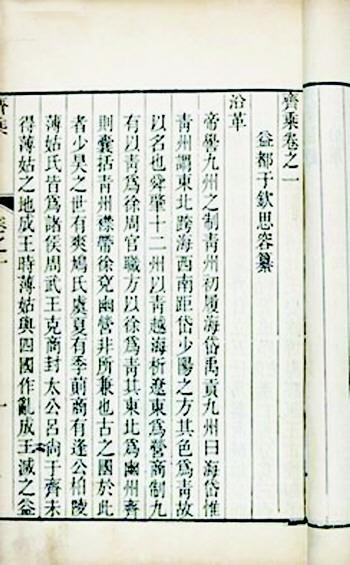 齊乘卷之一
益都于欽思容纂
沿革
帝嚳九州之制青州初履海岱禹貢九州曰海岱惟
青州謂東北跨海西南距岱少陽之方其色為青故
以名也舜肇十二州以青越海析遼東為營商制九
有以青為徐周官職方以徐為青其東北為幽州齊
則囊括青州襟帶徐兗幽營非所兼也古之國於此
者少昊之世有爽鳩氏虞夏有季萴商有逢公柏陵
薄姑氏皆為諸侯周武王克商封太公呂尚于齊未
得薄姑之地成王時薄姑與四國作亂成王滅之益
齊乘
卷之一
一